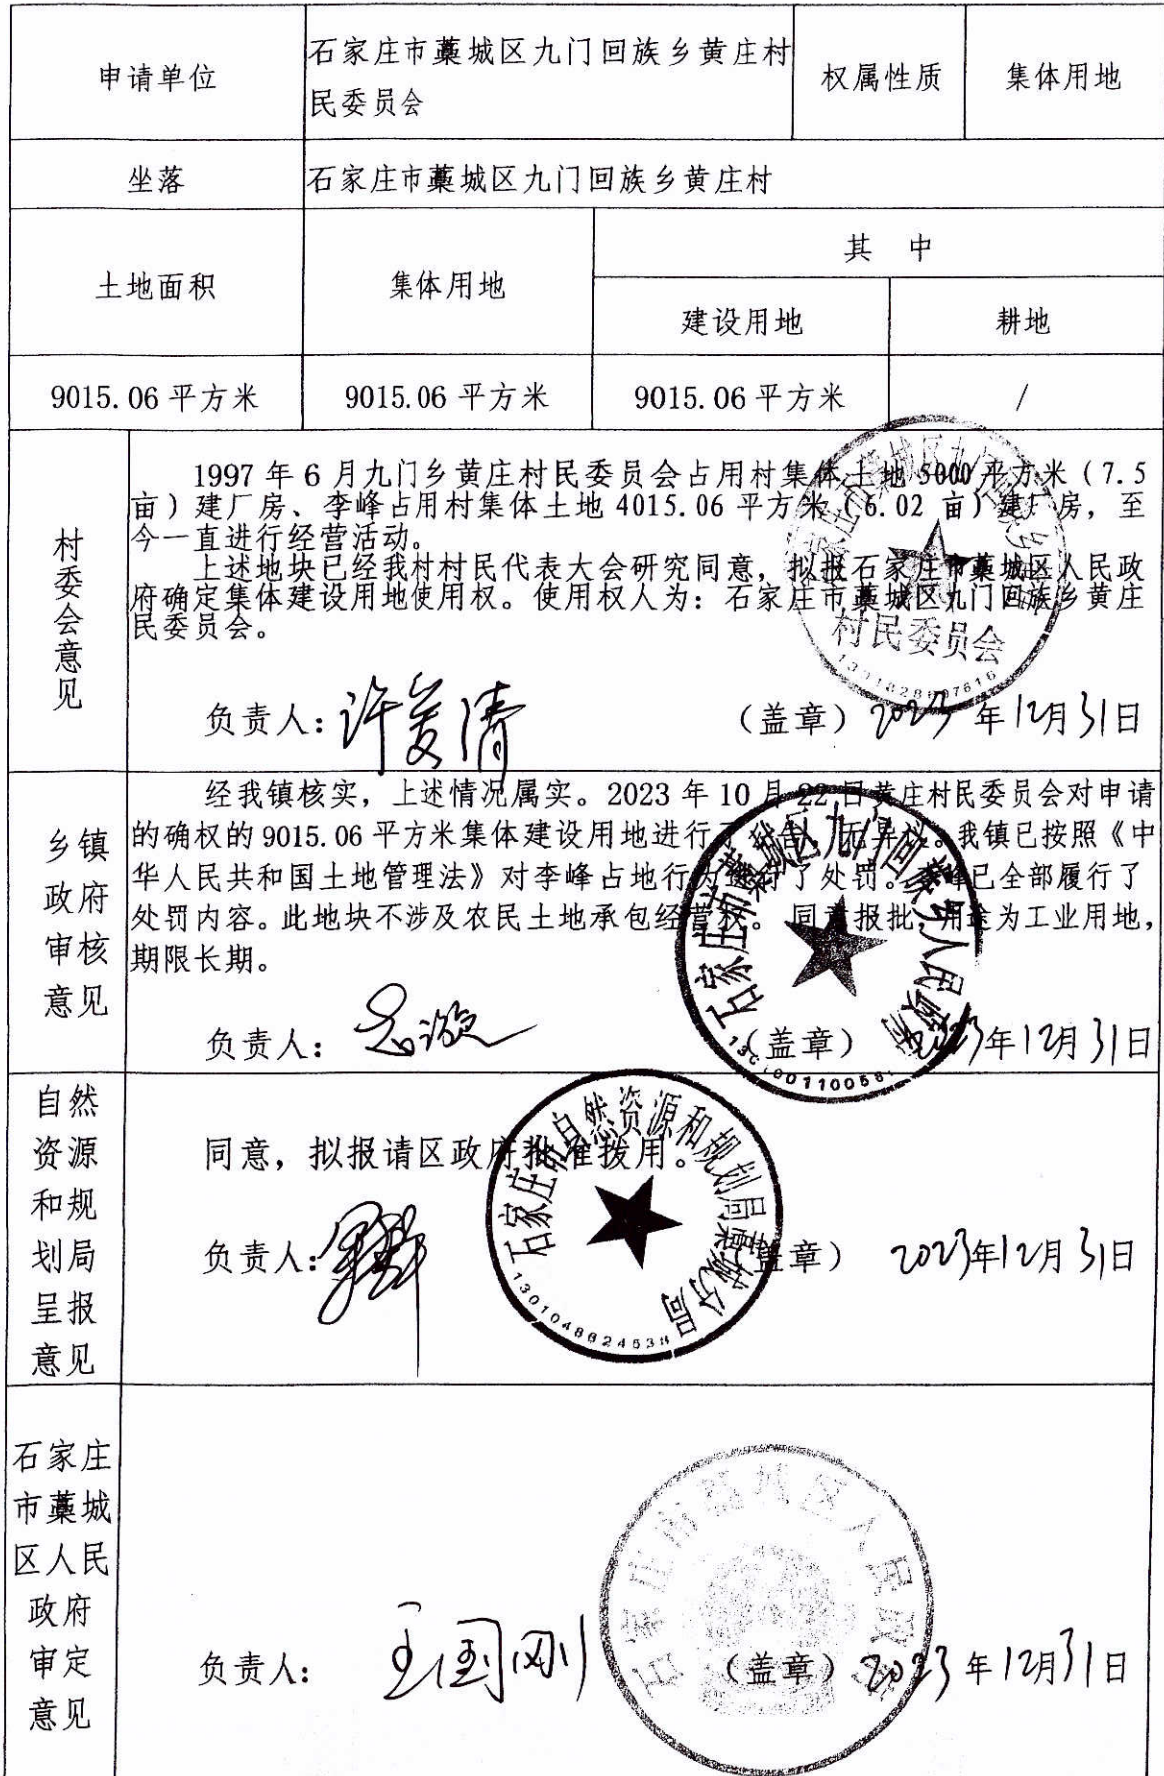 申请单位
石家庄市藁城区九门回族乡黄庄村
民委员会
权属性质
集体用地
坐落
石家庄市藁城区九门回族乡黄庄村
土地面积
集体用地
其 中
建设用地
耕地
9015.06 平方米
9015.06 平方米
9015.06 平方米
/
村
委
会
意
见
1997 年 6 月九门乡黄庄村民委员会占用村集体土地 5000 平方米（7.5
亩）建厂房、李峰占用村集体土地 4015.06 平方米（6.02 亩）建厂房，至
今一直进行经营活动。
上述地块已经我村村民代表大会研究同意，拟报石家庄市藁城区人民政
府确定集体建设用地使用权。使用权人为：石家庄市藁城区九门回族乡黄庄
民委员会。
村民委员会
负责人：
（盖章）2023 年 12月 31日
乡镇
政府
审核
意见
经我镇核实，上述情况属实。2023 年 10 月 22 日黄庄村民委员会对申请
的确权的 9015.06 平方米集体建设用地进行了 无异议。我镇已按照《中
华人民共和国土地管理法》对李峰占地行为进行了处罚。 峰已全部履行了
处罚内容。此地块不涉及农民土地承包经营权。 同意报批，用途为工业用地，
期限长期。
石家庄市藁城区九门回族乡人民政府
负责人：
（盖章） 2023年12月31日
自然
资源
和规
划局
呈报
意见
同意，拟报请区政府批准拨用。
石家庄市自然资源和规划局藁城分局
负责人：
（盖章） 2023年12月31日
石家庄
市藁城
区人民
政府
审定
意见
石家庄市藁城区人民政府
负责人： 王国刚
（盖章）2023年12月31日